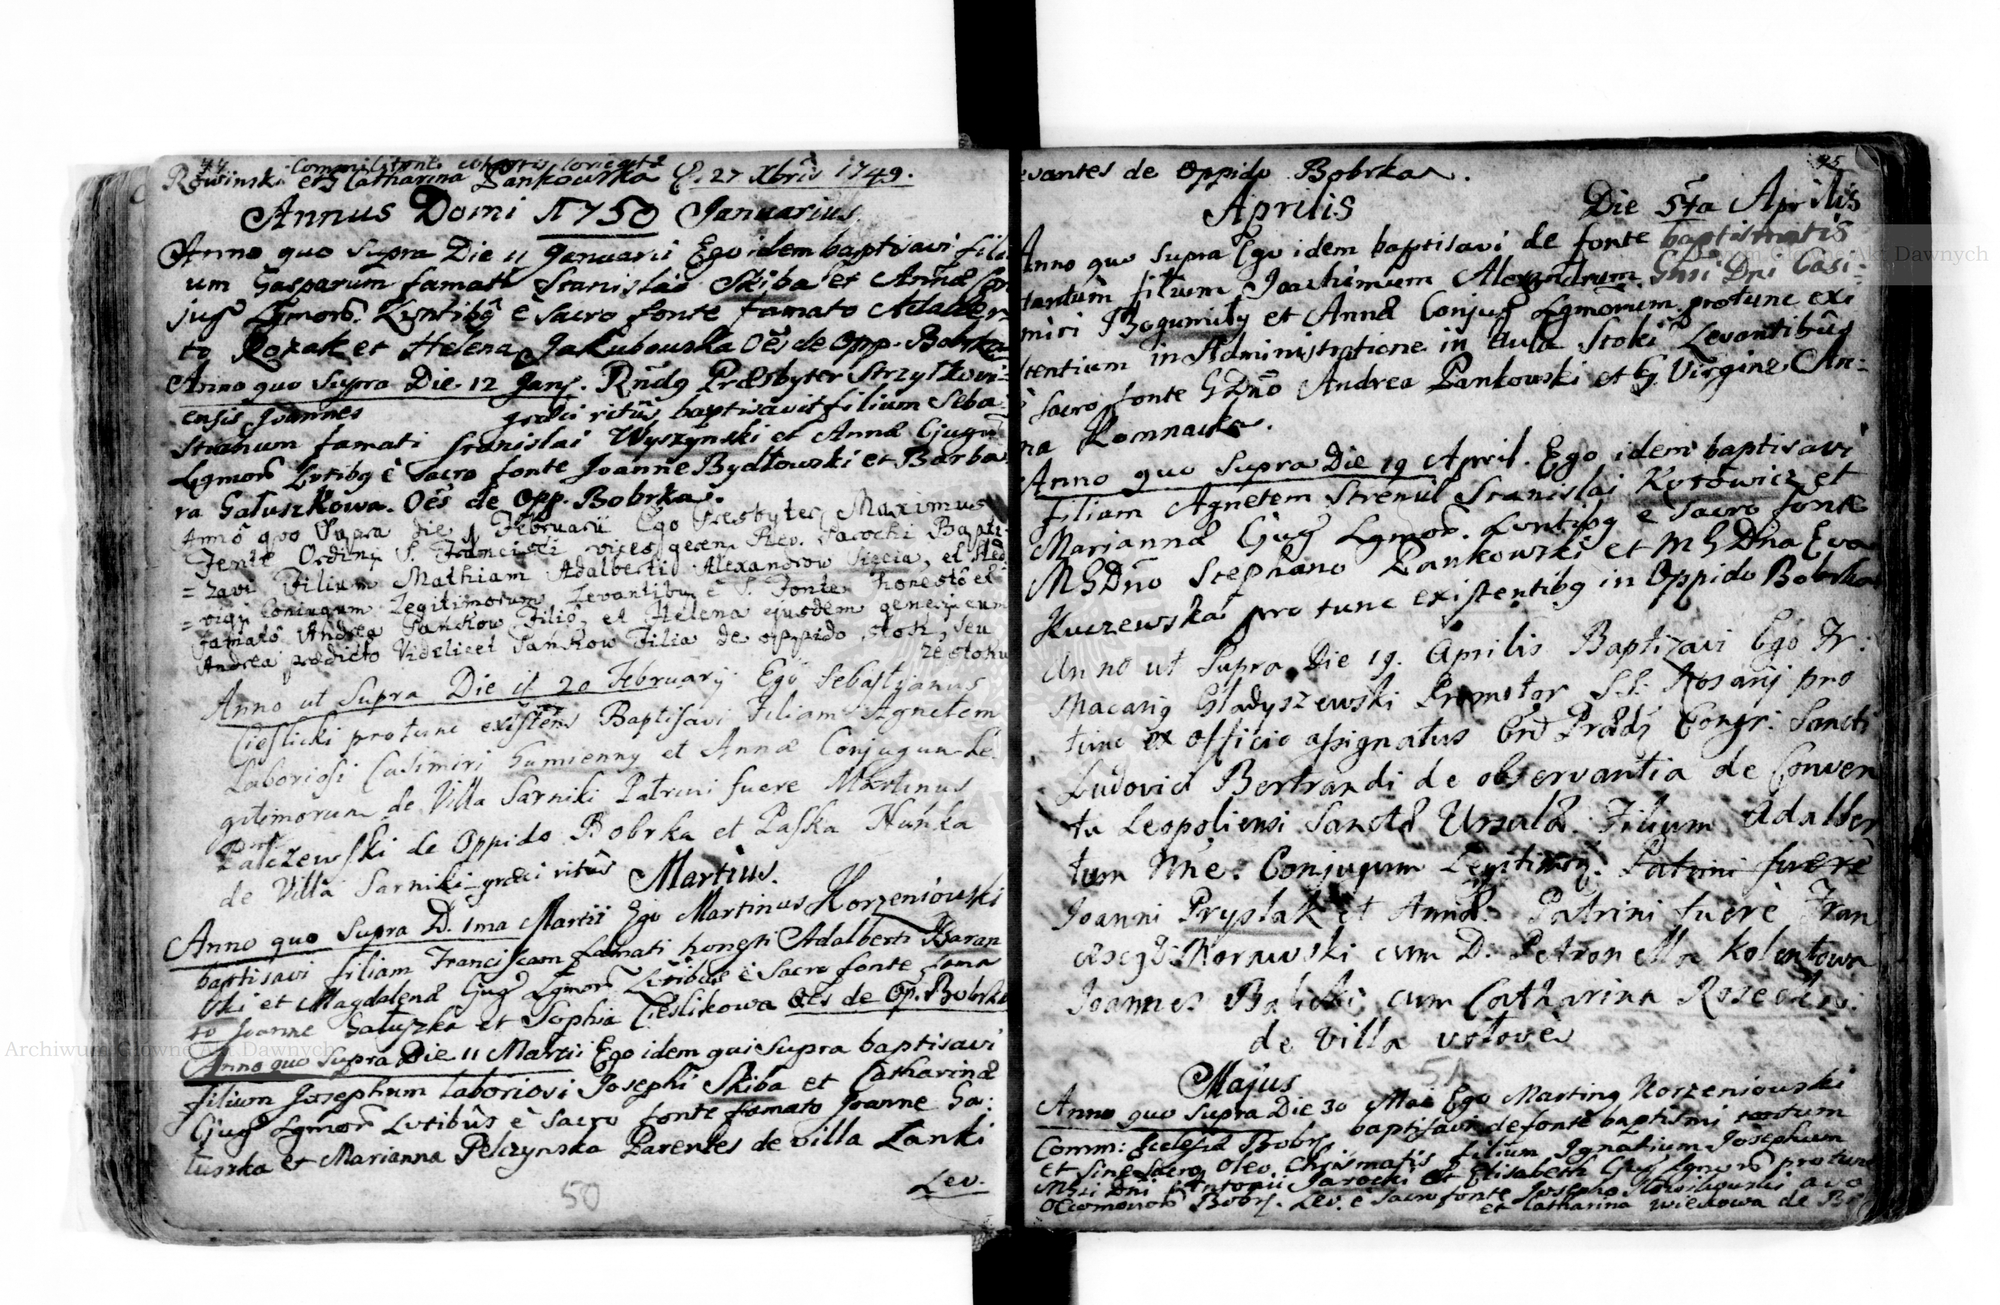 44
Commilitone cohortis loricatæ
Rowinski et Catharina Pankowska E. 27 Xbris 1749.
Annus Domi 1750 Januarius.
Anno quo supra Die 11 Januarii Ego idem baptisavi fili
um Gasparum famati Stanislai Skiba et Annæ Con
jug Lgmorũ. Lvntibg è Sacro fonte famato Adalber
to Kozak et Helena Jakubowska Oēs de Opp. Bobrka
Anno quo supra Die 12 Janj. Rndg Præsbyter Strzyłkovi=
ensis Joannes græci ritus baptisavit filium Seba
stianum famati Stanislai Wyszynski et Annæ Cjugũ
Lgmorũ Lvtibg è Sacro fonte Joanne Bydłowski et Barba
ra Gałuszkowa. Oēs de Opp. Bobrka.
Anno quo Supra die Februarii Ego Presbyter Maximus
Fente Ordinis S. Francisci vices gerens Rev. Parochi Bapti
=zavi Filium Mathiam Adalberti Alexandrow et
Coniugum Legitimorum Levantibus è S. Fonte honesto et
famato Andrea Pańkow Filio, et Helena ejusdem generis cum
Andrea prædicto Videlicet Pańkow Filia de oppido Stok, seu
ze Stoku
Anno ut Supra Die 20 Februarÿ. Ego Sebastjanus
Cieslicki protunc existens Baptisavi Filiam Agnetem
Laboriosi Casimiri Gumienny et Annæ Conjugum Le
gitimorum de Villa Sarniki Patrini fuere Martinus
Palczewski de Oppido Bobrka et Paska Hunka
de Villa Sarniki græci ritus
Martius.
Anno quo Supra D. 1ma Martii Ego Martinus Korzeniowski
baptisavi filiam Franciscam famati honesti Adalberti Baran
ski et Magdalenæ Cjug Lgmorũ Lvtibus è Sacro fonte fama
to Joanne Gałuszka et Sophia Cieslikowa Oēs de Op. Bobrka
Anno quo Supra Die 11 Martii Ego idem qui Supra baptisavi
filium Josephum laboriosi Josephi Skiba et Catharinæ
Cjug Lgmorũ Lvtibus è Sacro fonte famato Joanne Ga=
łuszka et Marianna Pelczynska Parentes de villa Lanki
Lev.
50
95
vantes de Oppido Bobrka.
Aprilis Die 5ta Aprilis
Anno quo supra Ego idem baptisavi de fonte baptismatis
tantum filium Joachimum Alexandrum Gnsi Dni Casi=
miri Bogumiły et Annæ Conjug Lgmorum protunc exi
stentium in Administratione in Aula Stoki Levantibus
è Sacro fonte G Dno Andrea Pankowski et G. Virgine An=
na Komnacka.
Anno quo supra Die 19 April. Ego idem baptisavi
filiam Agnetem Strenui Stanislai Kotowicz et
Mariannæ Cjug Lgmorũ. Lvntibg è Sacro fonte
MGDno Stephano Pankowski et MGDna Eva
Kuczewska pro tunc existentibg in Oppido Bobrka
Anno ut Supra Die 19. Aprilis Baptizavi Ego Fr:
Macarig Gładyszewski Promotor SS: Rosarij pro
tunc ex officio assignatus Ord Prædj Congr: Sancti
Ludovici Bertrandi de observantia de Conven
tu Leopoliensi Sanctæ Ursulæ. Filium Adalber
tum Nne. Conjugum Legitimorũ. Patrini fuerè
Joanni Pryslak et Annæ. Patrini fuerè Fran
cisçg: Morawski cum D. Petronella Kolentowa
Joannes Balicki cum Catharina
de Villa wołowe
51
Majus
Anno quo supra Die 30 Maii Ego Marting Korzeniowski
Comm: Ecclesiæ Bobrs. baptisavi de fonte baptismi tantum
et sine Sacro oleo Chrismatis filium Ignatium Josephum
MGsi Dni Antonii Jarocki et Elisabeth Cjug Lgmorũ protunc
Oeconomorũ Bobrs. Lev. è Sacro fonte Josepho
et Catharina Wieckowa de Bo
Archiwum Główne Akt Dawnych
Archiwum Główne Akt Dawnych